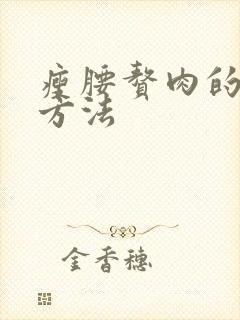 瘦腰赘肉的
方法
金香穗